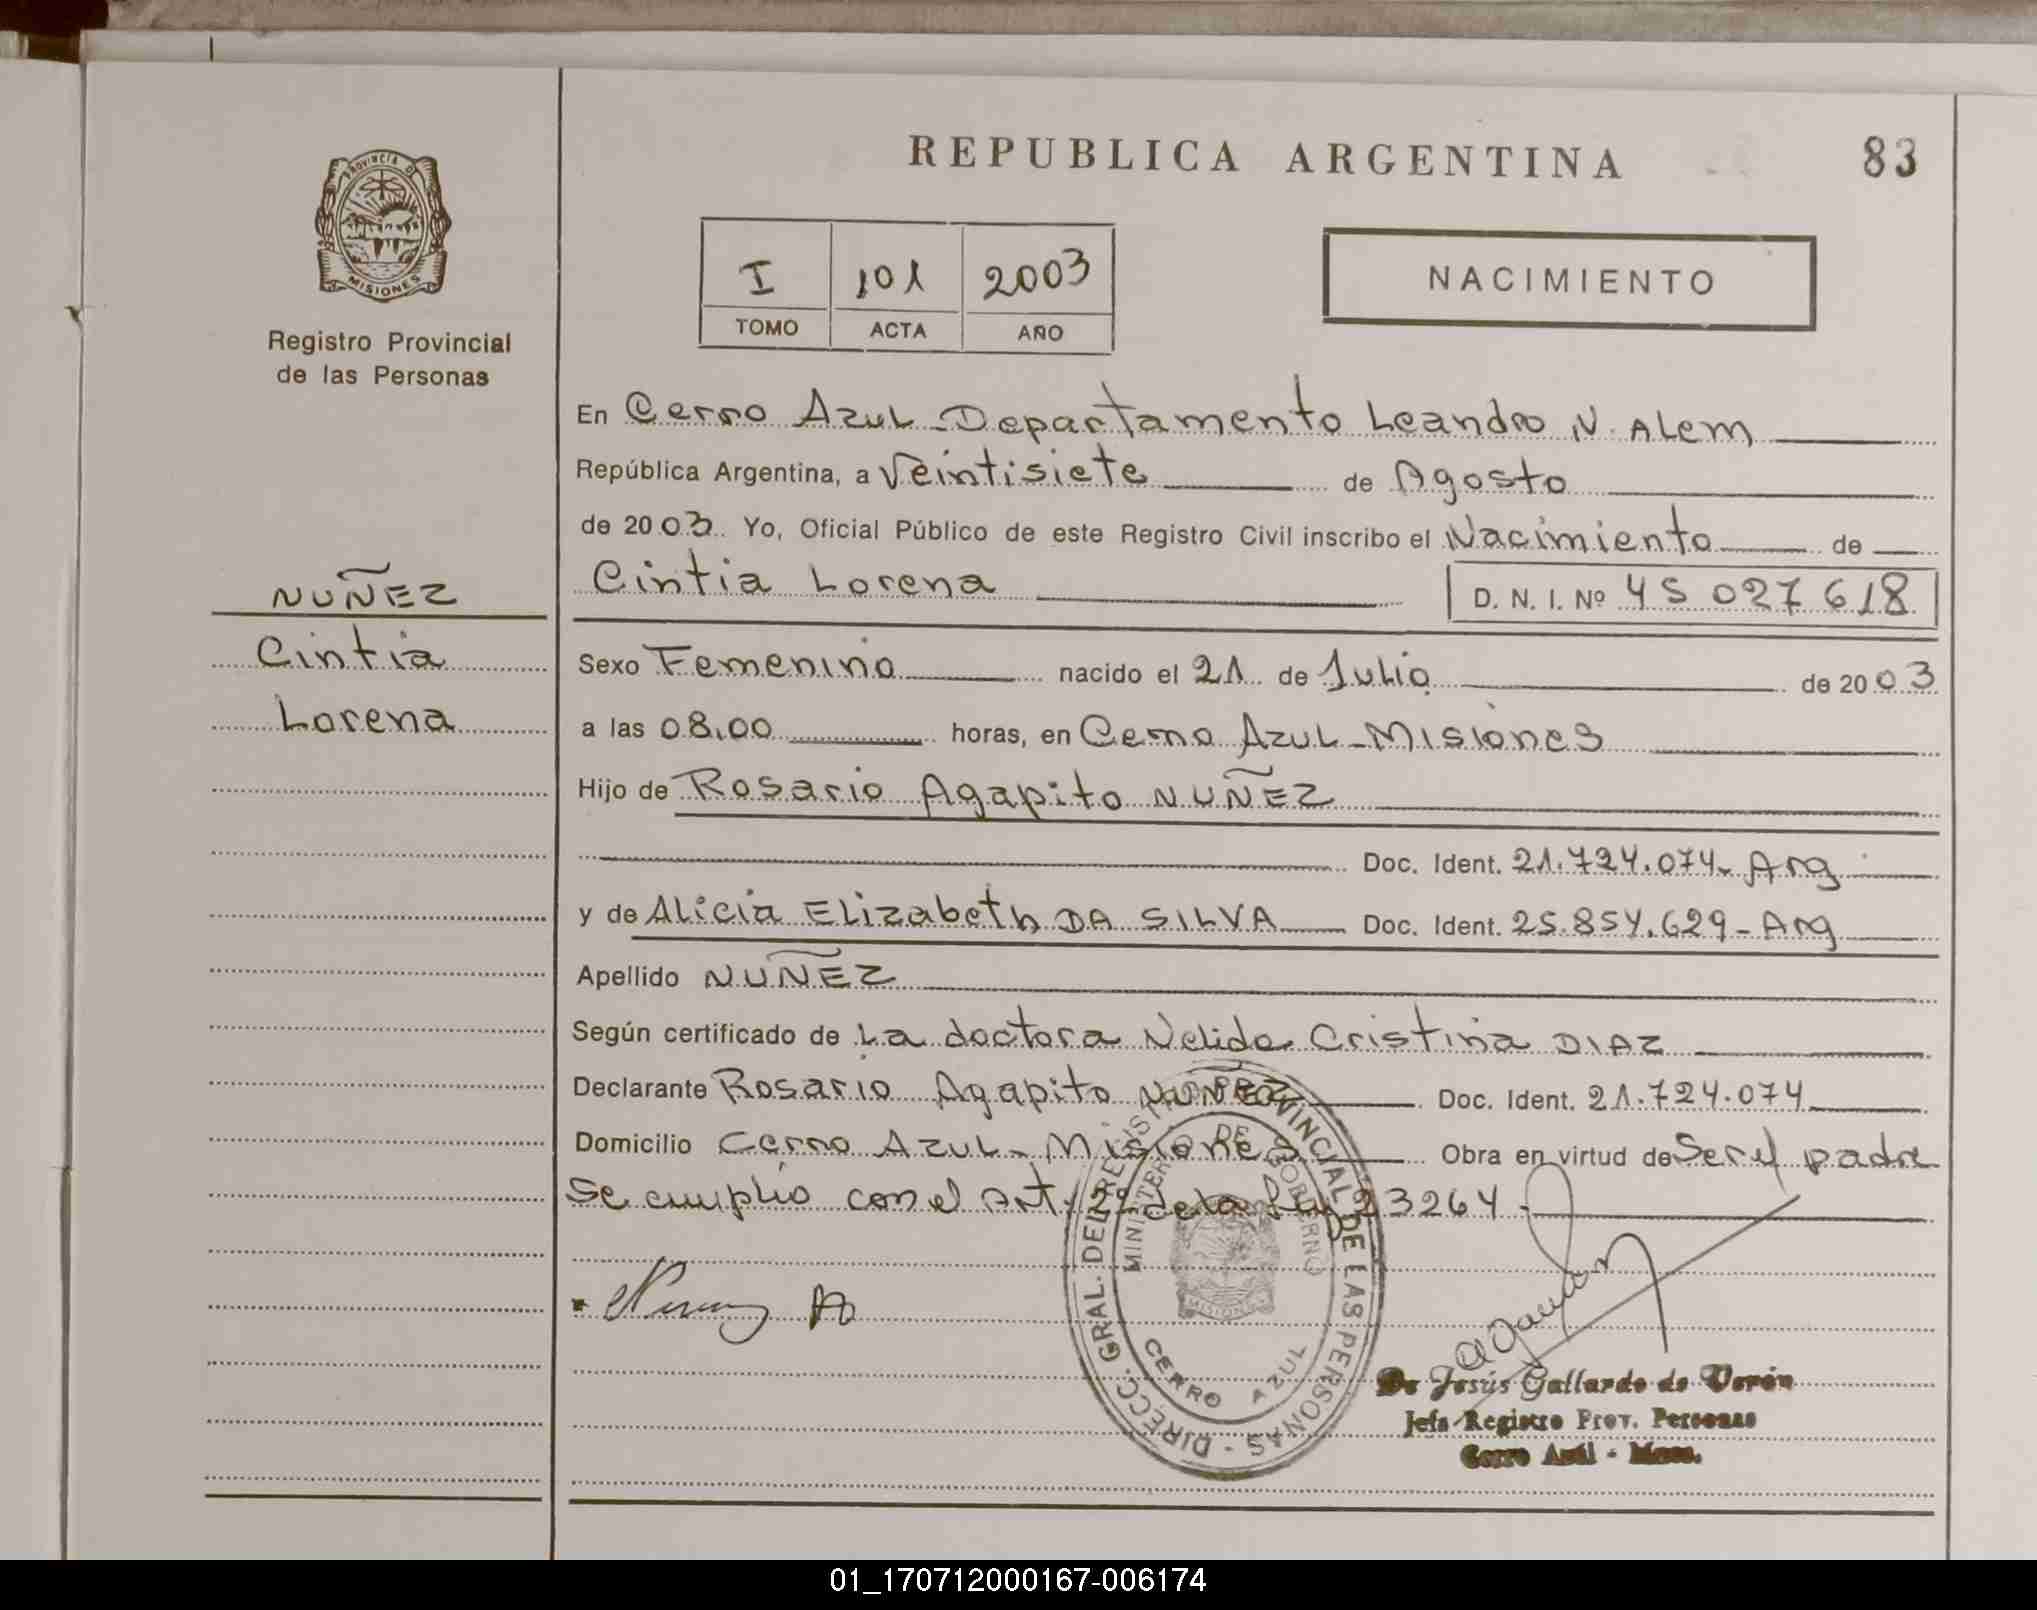 REPUBLICA ARGENTINA
83
PROVINCIA D
MISIONES
Registro Provincial
de las Personas
I 101 2003
TOMO ACTA AÑO
NACIMIENTO
En Cerro Azul - Departamento Leandro N. Alem
República Argentina, a Veintisiete de Agosto
de 2003. Yo, Oficial Público de este Registro Civil inscribo el Nacimiento de
Cintia Lorena D. N. I. Nº 45 027 618
NUÑEZ
Cintia
Lorena
Sexo Femenino nacido el 21 de Julio de 2003
a las 08,00 horas, en Cerro Azul - Misiones
Hijo de Rosario Agapito NUÑEZ
Doc. Ident. 21.724.074 - Arg
y de Alicia Elizabeth DA SILVA Doc. Ident. 25.854.629 - Arg
Apellido NUÑEZ
Según certificado de La doctora Nelida Cristina DIAZ
Declarante Rosario Agapito NUÑEZ Doc. Ident. 21.724.074
Domicilio Cerro Azul - Misiones Obra en virtud de Ser el padre
Se cumplio con el Art. 2º de la Ley 23264
DIRECC. GRAL. DEL REGISTRO PROVINCIAL DE LAS PERSONAS -
MINISTERIO DE GOBIERNO
MISIONES
CERRO AZUL
De Jesús Gallardo de Verón
Jefa Registro Prov. Personas
Cerro Azul - Mnes.
01_170712000167-006174